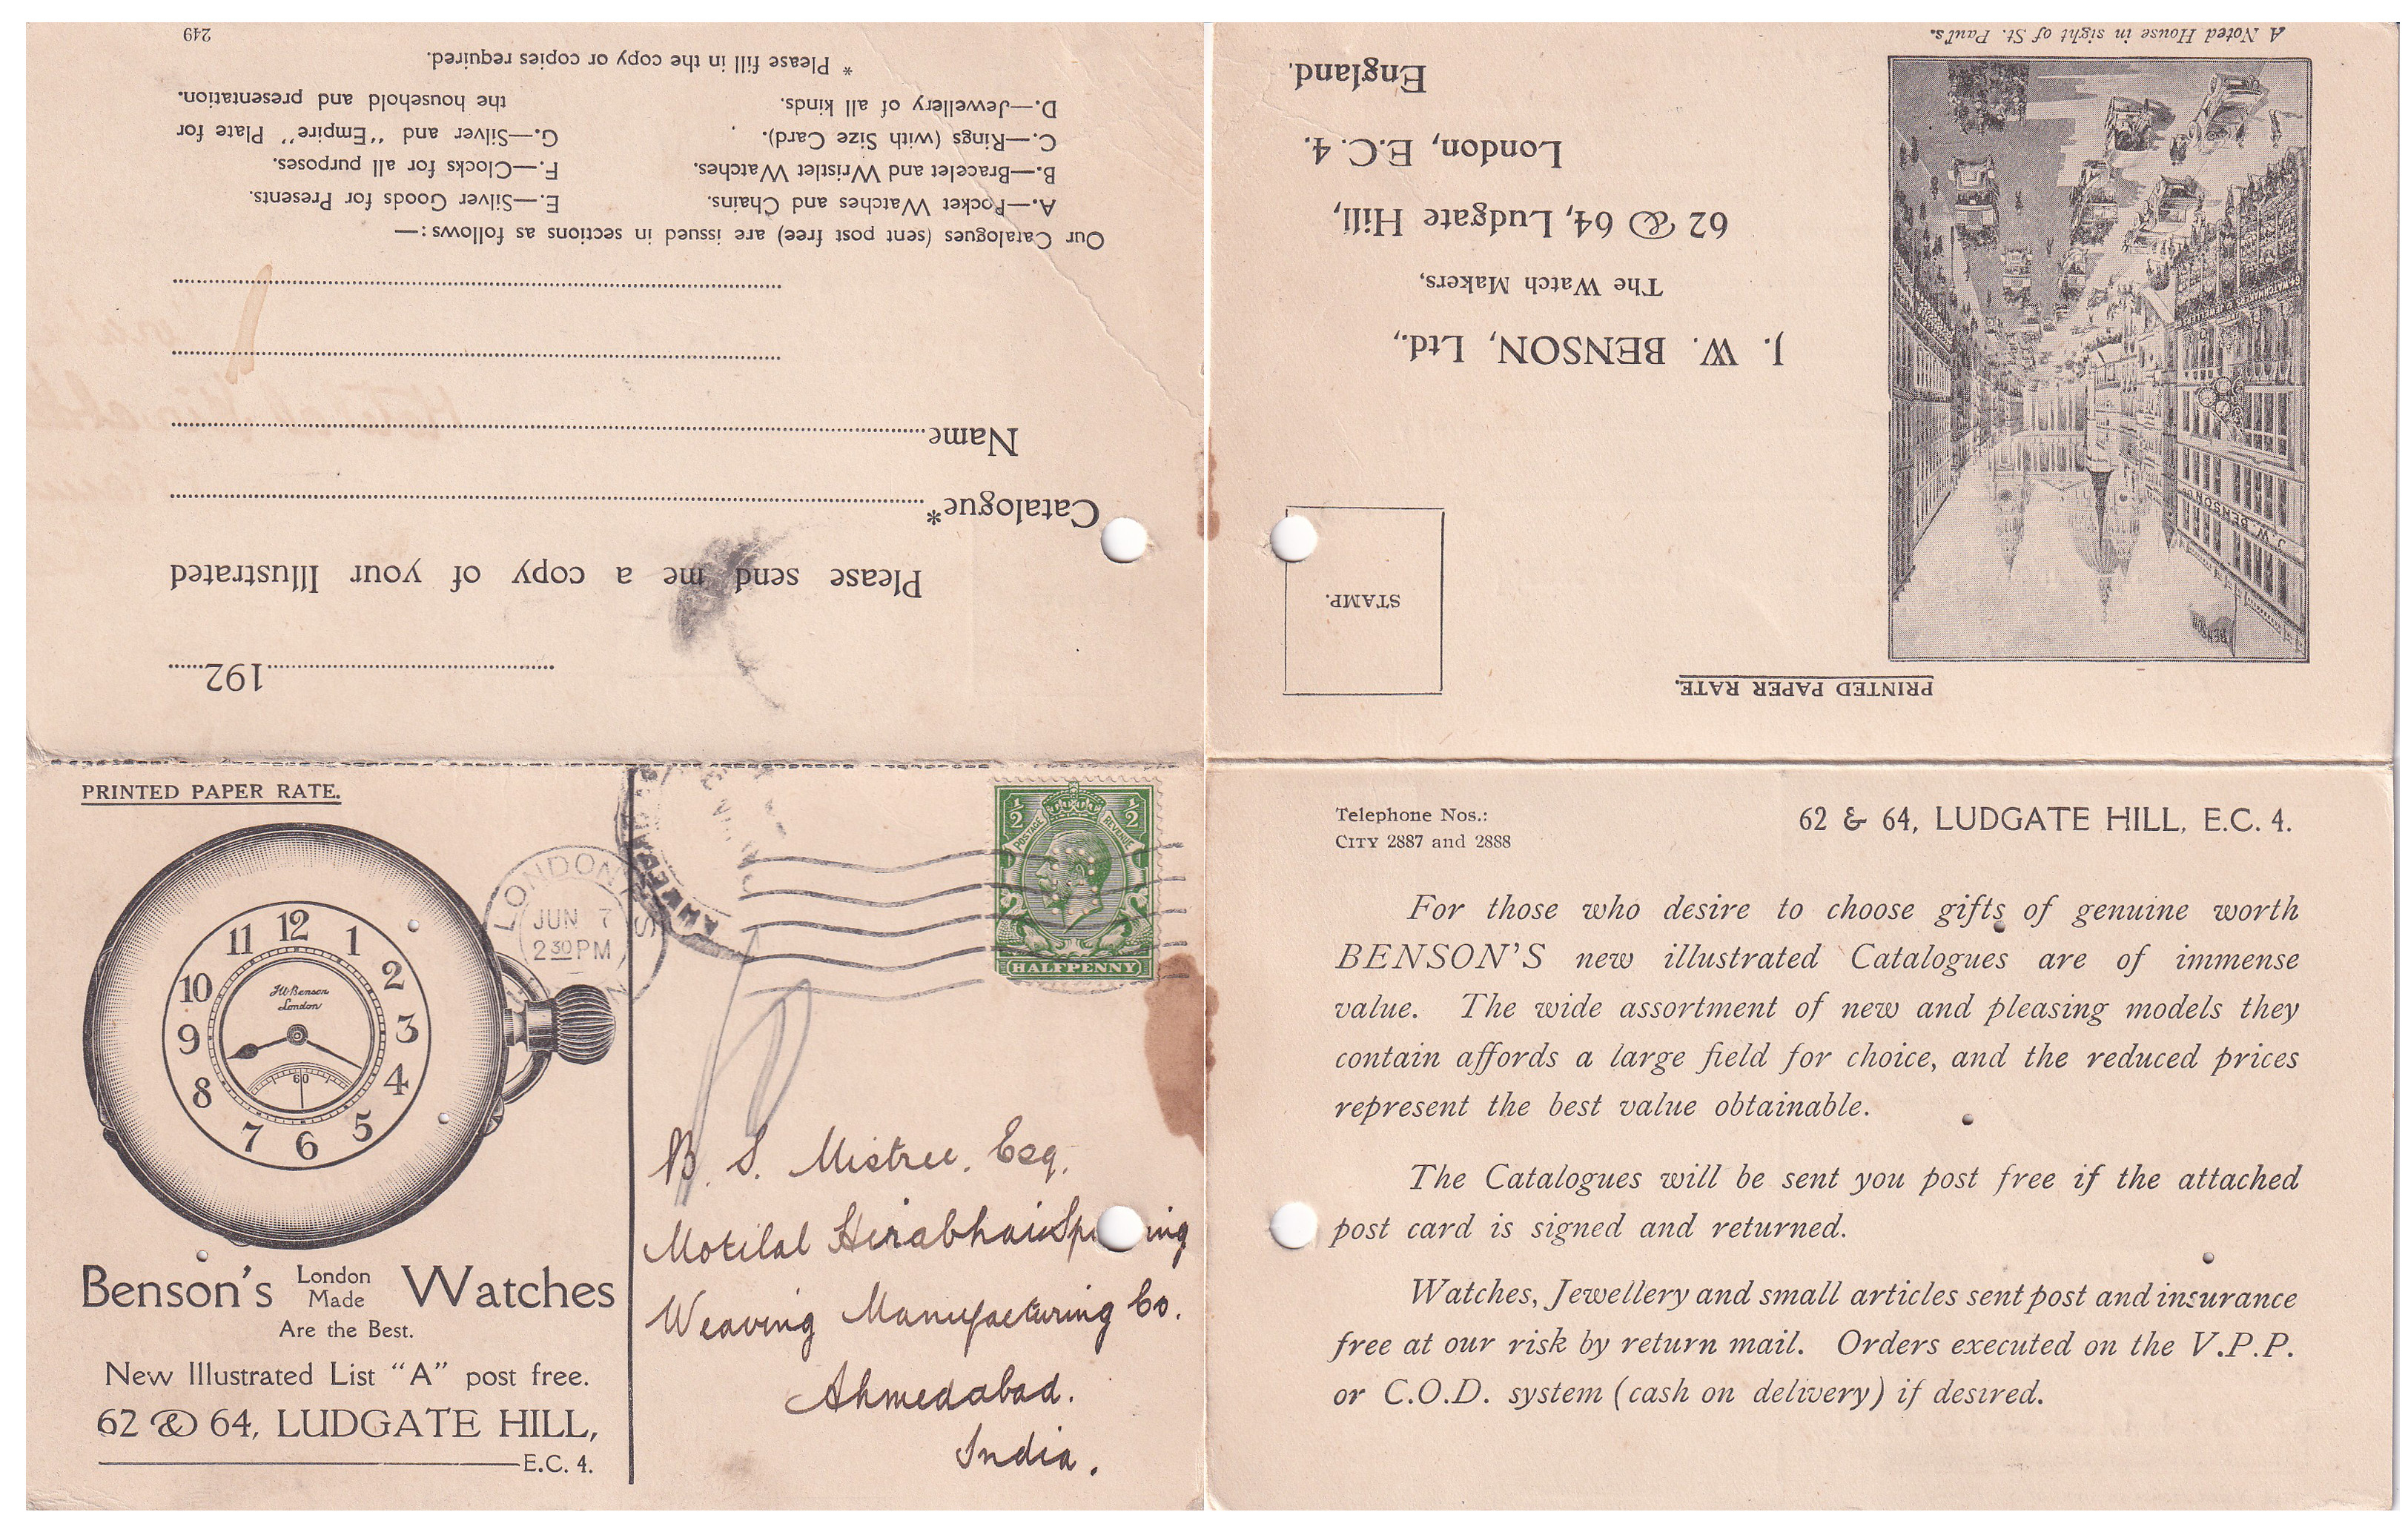 249
* Please fill in the copy or copies required.
D.—Jewellery of all kinds.
the household and presentation.
C.—Rings (with Size Card).
G.—Silver and "Empire" Plate for
B.—Bracelet and Wristlet Watches.
F.—Clocks for all purposes.
A.—Pocket Watches and Chains.
E.—Silver Goods for Presents.
Our Catalogues (sent post free) are issued in sections as follows:—
Name
Catalogue*
Please send me a copy of your Illustrated
192
A Noted House in sight of St. Paul's.
England.
London, E.C. 4.
62 & 64, Ludgate Hill,
The Watch Makers,
J. W. BENSON, Ltd.,
STAMP.
J.W. BENSON
BENSON
PRINTED PAPER RATE.
PRINTED PAPER RATE.
12
1
2
3
4
5
6
7
8
9
10
11
JWBenson
London
60
Benson's London Made Watches
Are the Best.
New Illustrated List "A" post free.
62 & 64, LUDGATE HILL,
E.C. 4.
LONDON
JUN 7
2 30 PM
½ ½
POSTAGE REVENUE
HALFPENNY
B. S. Mistree. Esq.
Motilal Hirabhai Sp ing
Weaving Manufacturing Co.
Ahmedabad.
India.
Telephone Nos.:
CITY 2887 and 2888
62 & 64, LUDGATE HILL, E.C. 4.
For those who desire to choose gifts of genuine worth
BENSON'S new illustrated Catalogues are of immense
value. The wide assortment of new and pleasing models they
contain affords a large field for choice, and the reduced prices
represent the best value obtainable.
The Catalogues will be sent you post free if the attached
post card is signed and returned.
Watches, Jewellery and small articles sent post and insurance
free at our risk by return mail. Orders executed on the V.P.P.
or C.O.D. system (cash on delivery) if desired.